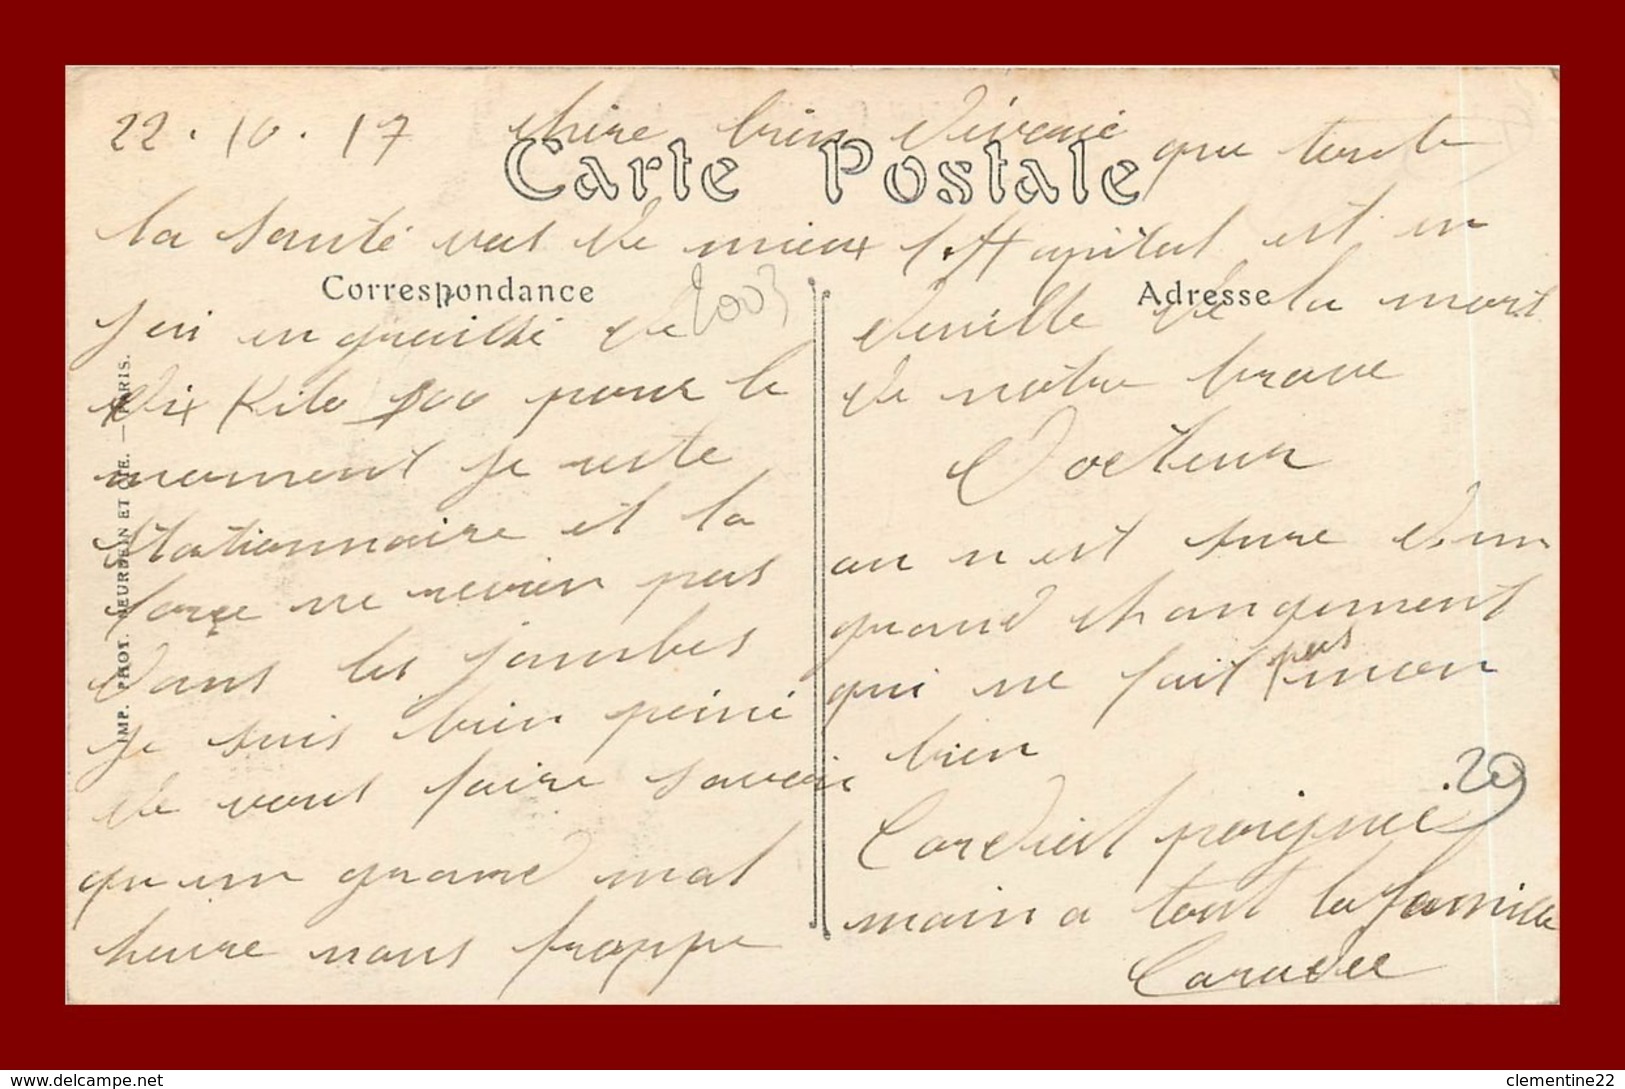 22.10.17 chire bien
que toute
Carte Postale
la Santé vas de mieux
Correspondance
2003
j'ai engraissé de
dix Kilo 500 pour le
moment je reste
stationnaire et la
force ne revien pas
dans les jambes
je suis bien peiné
de vous faire savoir
qu'un grand mal
heure nous frappe
l'Hopital est en
Adresse
deuille de la mort
de notre brave
Docteur
on n'est sure d'un
grand changement
qui ne fait pas mon
bien
20
Cordial poignée
main a tout la famille
IMP. PHOT. NEURDEIN ET CIE. — PARIS.
https://www.delcampe.net
clementine22